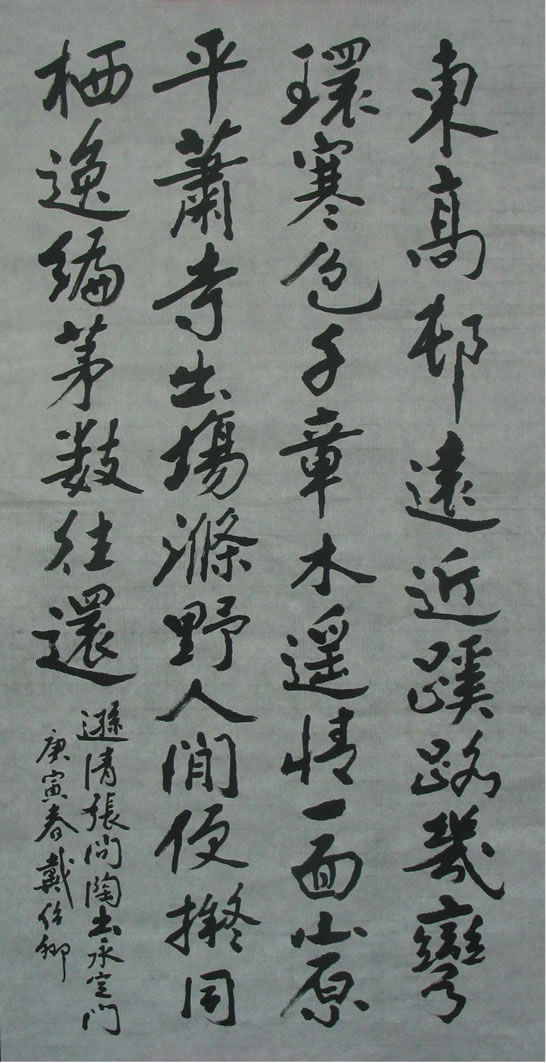 東高邨遠近蹊路幾彎
環寒色千章木遥情一面山原
平蕭寺出場滌野人閒便擬同
栖逸編茅数往還
遜清張問陶出永定門
庚寅春戴卿